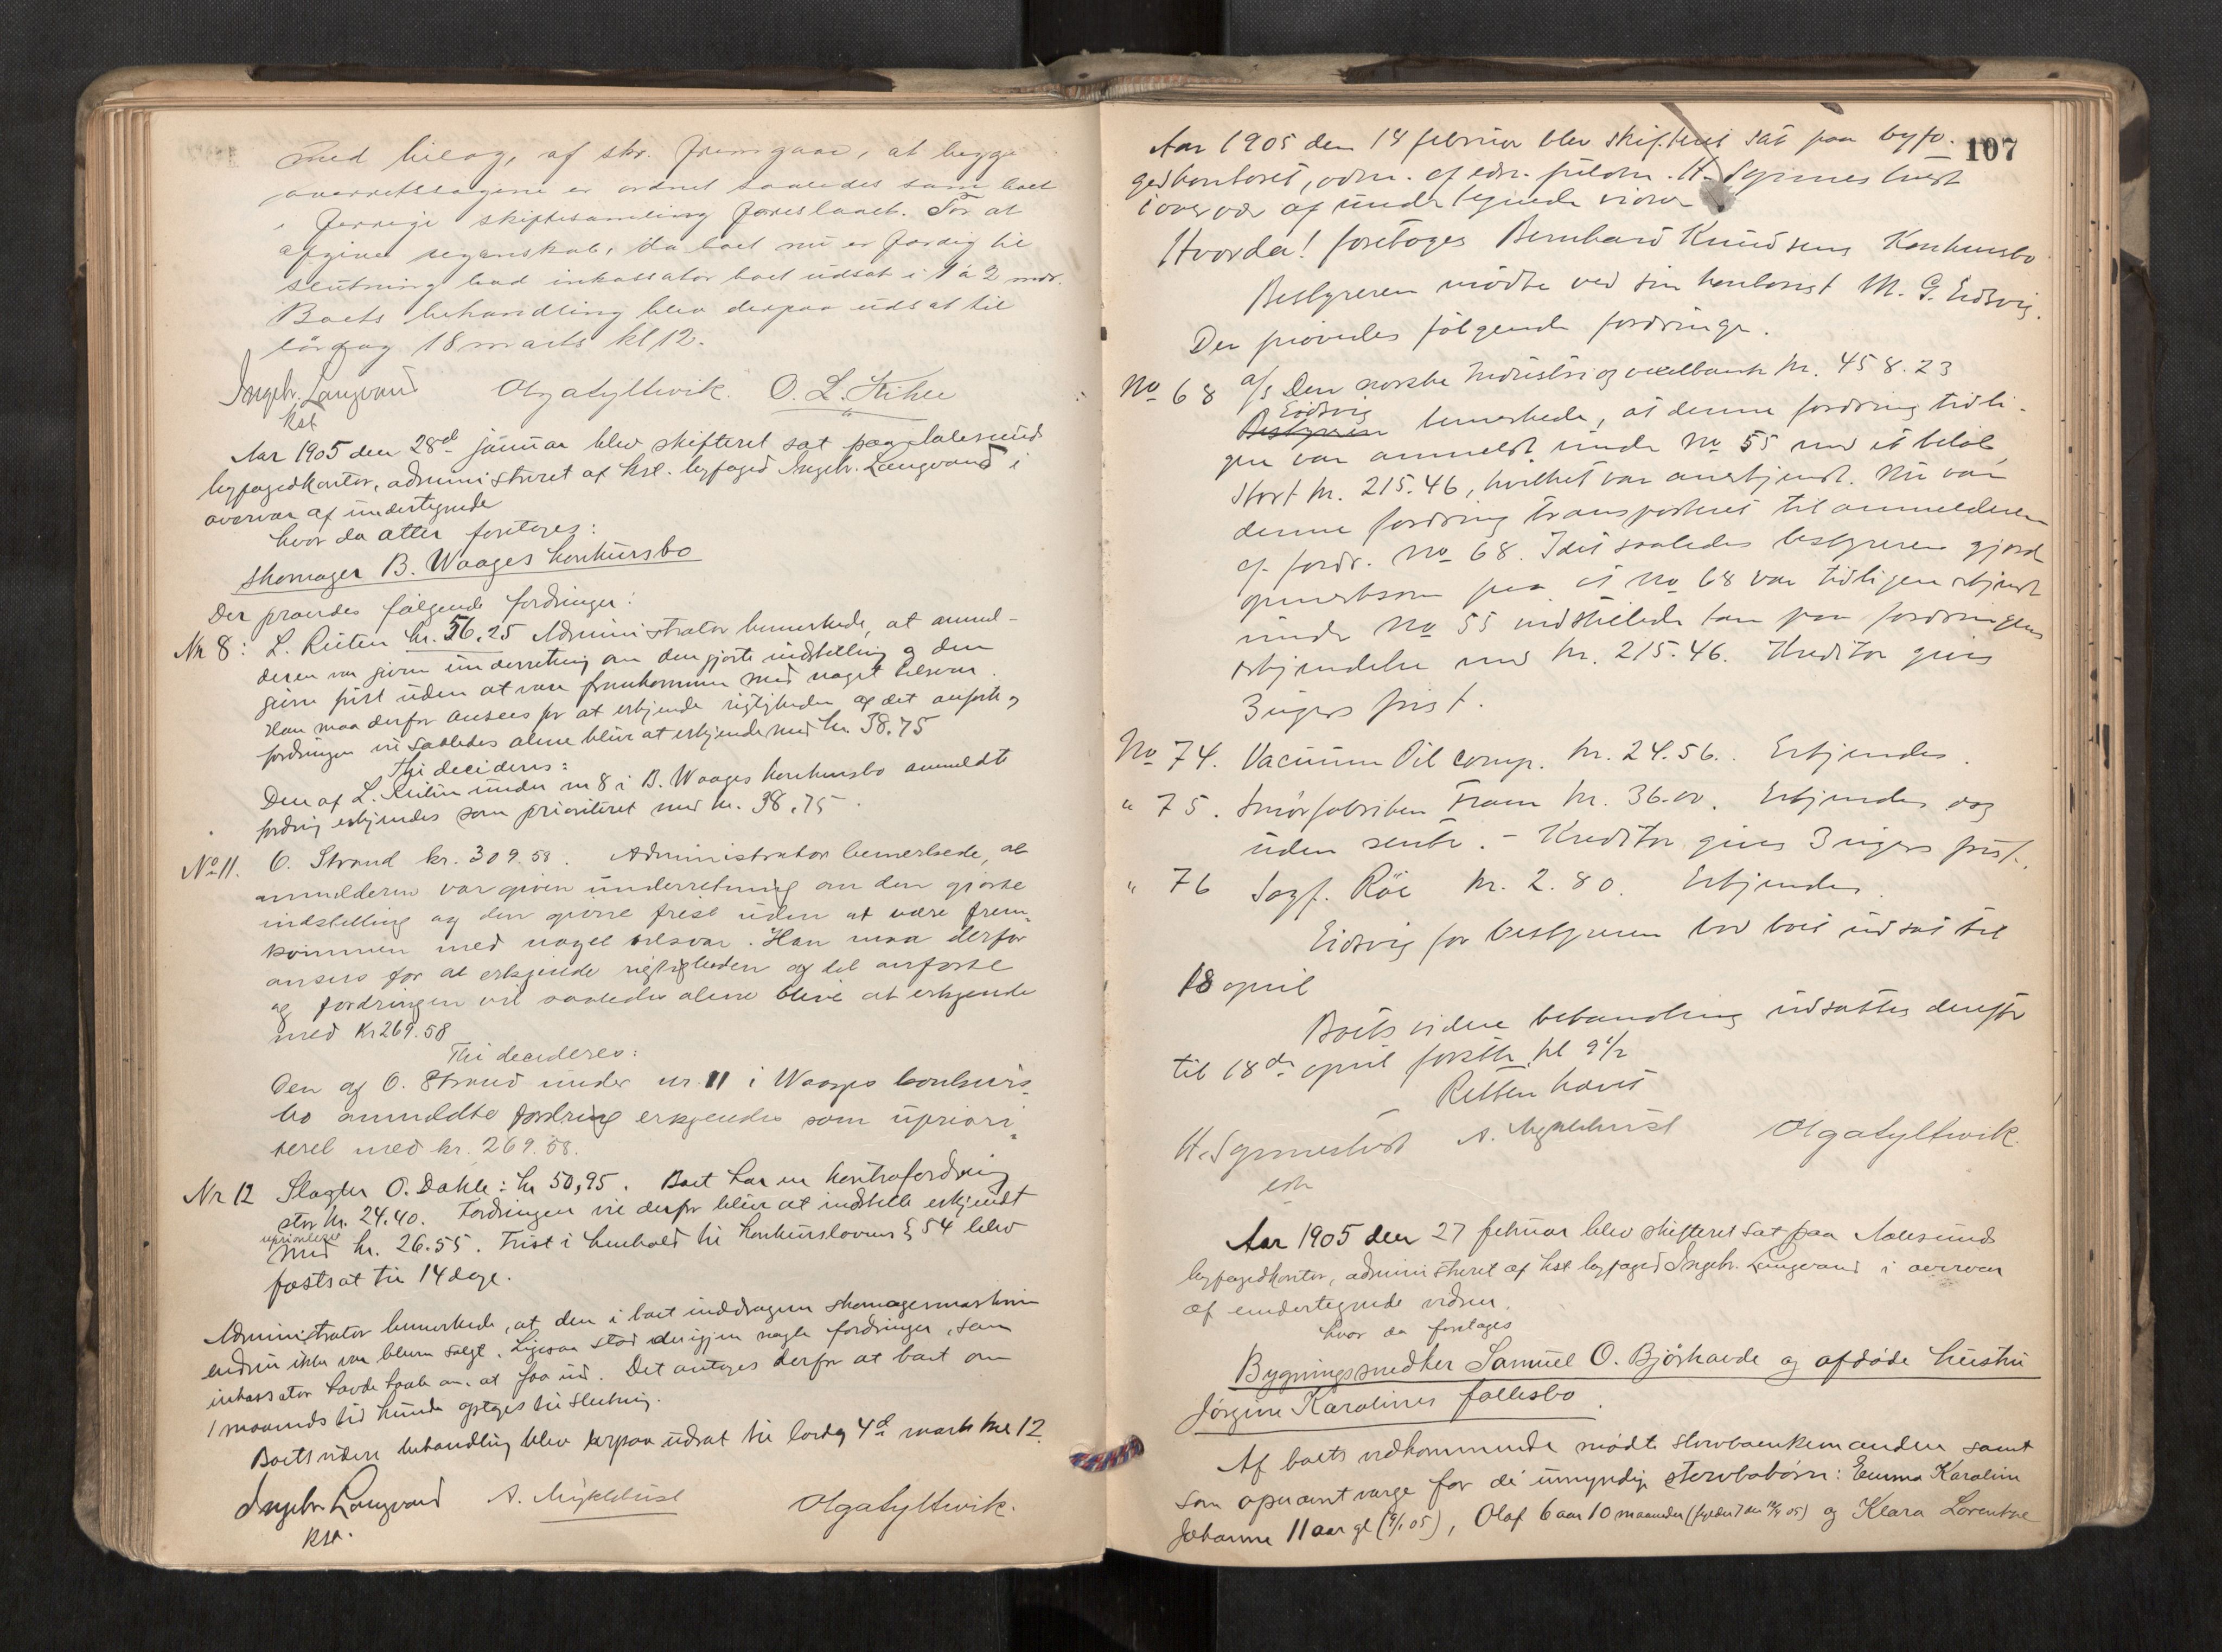 med bilag, af skr. fremgaar, at begge
overretssagene er ordnet saaledes som boet
i forrige skiftesamling foreslaaet. For at
afgive regnskab, da boet nu er færdig til
slutning bad inkassator boet udsat i 1 à 2 mdr.
Boets behandling blev derpaa udsat til
lördag 18 marts kl 12.
Ingebr. Langvand Olga Syltevik. O. L. Kihle
kst
Aar 1905 den 28de januar blev skifteret sat paa Aalesunds
byfogedkontor, administreret af kst. byfoged Ingebr. Langvand i
overvær af undertegnede
hvor da atter foretages:
Skomager B. Waages konkursbo
Der prövedes fölgende fordringer:
Nr 8: L. Reiten kr. 56.25 Administrator bemerkede, at anmel-
deren var given underretning om den gjorte indstilling og den
givne frist uden at være fremkommen med noget tilsvar.
Han maa derfor ansees for at erkjende rigtigheden af det anförte og
fordringen vil saaledes alene blive at erkjende med kr. 38.75
Thi decideres:
Den af L. Reiten under nr 8 i B. Waages konkursbo anmeldte
fordring erkjendes som prioriteret med kr. 38.75.
No 11. O. Strand kr. 309.58. Administrator bemerkede, at
anmelderen var given underretning om den gjorte
indstilling og den givne frist uden at være frem-
kommen med noget tilsvar. Han maa derfor
ansees for at erkjende rigtigheden af det anförte
og fordringen vil saaledes alene blive at erkjende
med Kr 269.58
Thi decideres:
Den af O. Strand under nr. 11 i Waages konkurs-
bo anmeldte fordring erkjendes som upriori-
teret med kr. 269.58.
Nr 12 Slagter O. Dahle: kr 50,95. Boet har en kontrafordring
stor kr. 24.40. Fordringen vil derfor blive at indstille erkjendt
uprioriteret
med kr. 26.55. Frist i henhold til konkurslovens § 54 blev
fastsat til 14 dage.
Administrator bemerkede, at den i boet inddragne skomagermaskine
endnu ikke var bleven solgt. Ligesaa stod der igjen nogle fordringer, som
inkassator havde haab om at faa ind. Det antages derfor at boet om
1 maaneds tid kunde optages til slutning.
Boets videre behandling blev derpaa udsat til lordag 4de marts kl 12.
Ingebr. Langvand A. Myklebust Olga Syltevik.
kst.
107
Aar 1905 den 14 februar blev skifteret sat paa byfo-
gedkontoret, adm. af edsv. fuldm. H. Synnestvedt
i overvær af undertegnede vidner
Hvorda! foretoges Bernhard Knudsens Konkursbo
Bestyreren mödte ved sin kontorist M. G. Eidsvig.
Der prövedes fölgende fordringer.
No 68 a/s Den norske Industri og vexelbank kr. 458.23
Eidsvig
Bestyreren bemerkede, at denne fordring tidli-
gere var anmeldt under No 55 med et belöb
stort kr. 215.46, hvilket var anerkjendt. Nu var
denne fordring transporteret til anmelderen
af fordr. No 68. Idet saaledes bestyreren gjorde
opmerksom paa at No 68 var tidligere erkjendt
under No 55 indstillede han paa fordringens
erkjendelse med kr. 215.46. Kreditor gives
3 ugers frist.
No 74. Vacuum Oil comp. kr. 24.56. Erkjendes.
" 75. Smörfabriken Fram kr. 36.00. Erkjendes dog
uden rente. – Kreditor gives 3 ugers frist.
" 76 Sagf. Röe kr. 2.80. Erkjendes.
Eidsvig for bestyreren bad boet udsat til
18 april
Boets videre behandling udsattes derefter
til 18de april förstk. kl 9 1/2
Retten hævet
H. Synnestvedt A. Myklebust Olga Syltevik.
edsv
Aar 1905 den 27 februar blev skifteret sat paa Aalesunds
byfogedkontor, administreret af kst byfoged Ingebr. Langvand i overvær
af undertegnede vidner.
hvor da foretages
Bygningssnedker Samuel O. Björkavde og afdöde hustru
Jörgine Karolines fællesbo.
Af boets vedkommende mödte stervboenkemanden samt
som opnævnt værge for de umyndige stervbobörn: Emma Karoline
Johanne 11 aar gl (9/1 05), Olaf 6 aar 10 maaneder (fylder 7 den 14/4 05) og Klara Lorentse